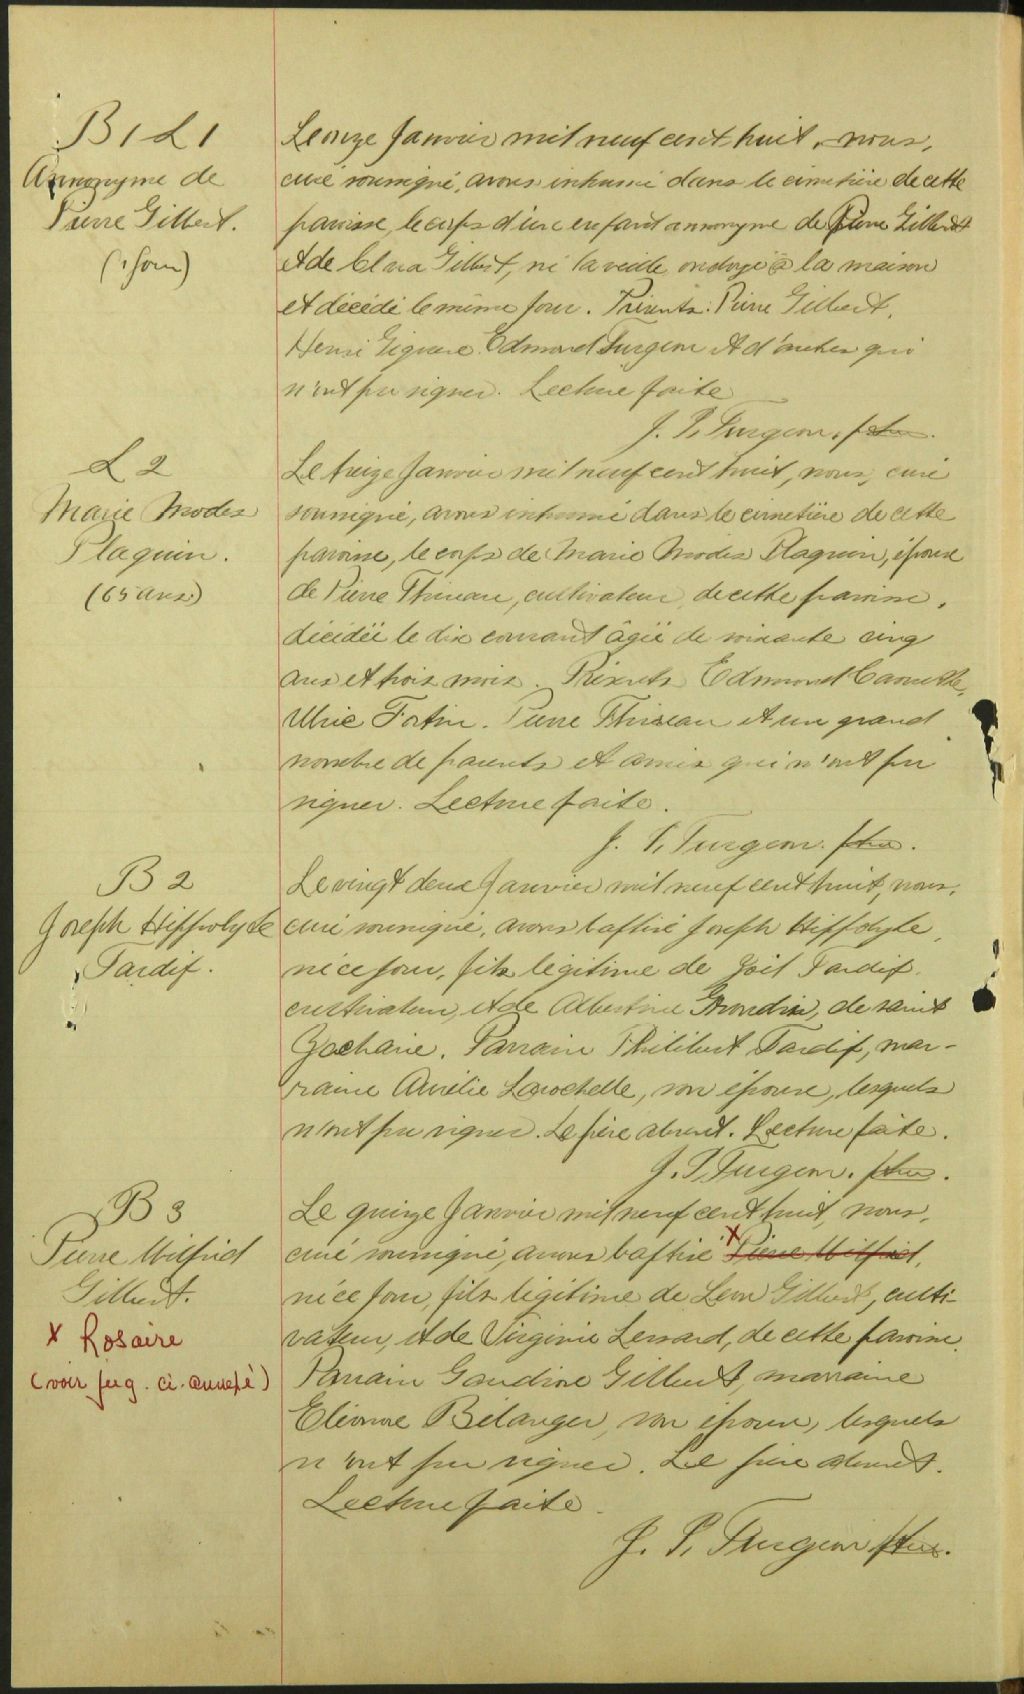 B 1 L 1
Annonyme de
Pierre Gilbert.
(1 jour)
Le onze Janvier mil neuf cent huit, nous,
curé soussigné, avons inhumé dans le cimetière de cette
paroisse, le corps d'un enfant annonyme de Pierre Gilbert
et de Clara Gilbert, né la veille ondoyé à la maison
et décédé le même jour. Présents: Pierre Gilbert,
Henri Giguere Edmond Turgeon et d'autres qui
n'ont pu signer. Lecture faite
J. P. Turgeon, ptre.
L 2
Marie Modes
Plaquin.
(65 ans)
Le treize Janvier mil neuf cent huit, nous, curé
soussigné, avons inhumé dans le cimetière de cette
paroisse, le corps de Marie Modes Plaquin, épouse
de Pierre Thineau, cultivateur, de cette paroisse,
décédée le dix courant âgée de soixante cinq
ans et trois mois. Présents Edmond
Ulric Fortin. Pierre et un grand
nombre de parents et amis qui n'ont pu
signer. Lecture faite.
J. P. Turgeon. ptre.
B 2
Joseph Hippolyte
Tardif.
Le vingt deux Janvier mil neuf cent huit, nous,
curé soussigné, avons baptisé Joseph Hippolyte,
né ce jour, fils légitime de Joël Tardif,
cultivateur, et de Albertine Grondin, de saint
Zacharie. Parrain Philibert Tardif, mar-
raine Aurélie Larochelle, son épouse, lesquels
n'ont pu signer. Le père absent. Lecture faite.
J. P. Turgeon. ptre.
B 3
Pierre Wilfrid
Gilbert.
x Rosaire
(voir jug. ci-annexé)
Le quinze Janvier mil neuf cent huit, nous,
curé soussigné, avons baptisé x Pierre Wilfrid,
né ce jour, fils légitime de Léon Gilbert, culti-
vateur, et de Virginie Lessard, de cette paroisse.
Parrain Gaudiose Gilbert, marraine
Eléonore Bélanger, son épouse, lesquels
n'ont pu signer. Le père absent.
Lecture faite.
J. P. Turgeon ptre.